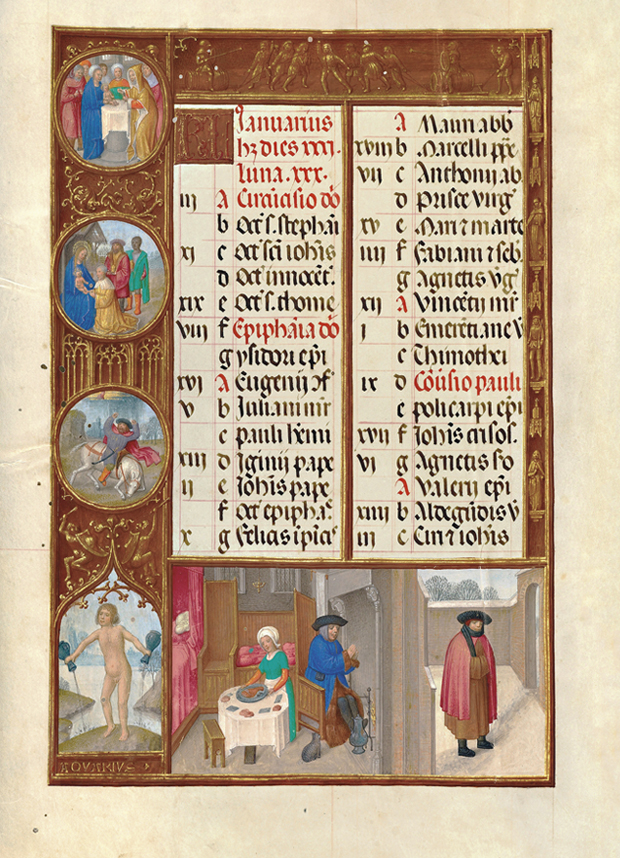 KL Januarius
hʒ dies xxxi.
Luna. xxx.
iii A Circũcisio dõ
b Oct̃ s. stephãi
xi c Oct̃ scĩ iohĩs
d Oct̃ innocẽt.
xix e Oct̃ s. thome
viii f Epiphãia dõ
g ysidori ep̃i
xvi A Eugenij
v b Iuliani mr̃
c pauli h̃emi
xiii d Iginij pape
ii e Ioh̃is pape
f Oct̃ epiphã.
x g Felicis ĩpĩcis
A Mauri abb̃
xviii b Marcelli pp̃e
vii c Anthonij ab
d Prisce virg̃
xv e Mari ⁊ marte
iiii f Fabiani ⁊ seb̃.
g Agnetis vg̃
xii A Vincẽtij mr̃
i b Emerẽtiane v̄
c Thimothei
ix d Cõv̾sio pauli
e policarpi ep̃i
xvii f Ioh̃is crisos.
vi g Agnetis s̃o
A Valerij ep̃i
xiiii b Aldegũdis v̄
iii c Ciri ⁊ ioh̃is
AQVARIVS